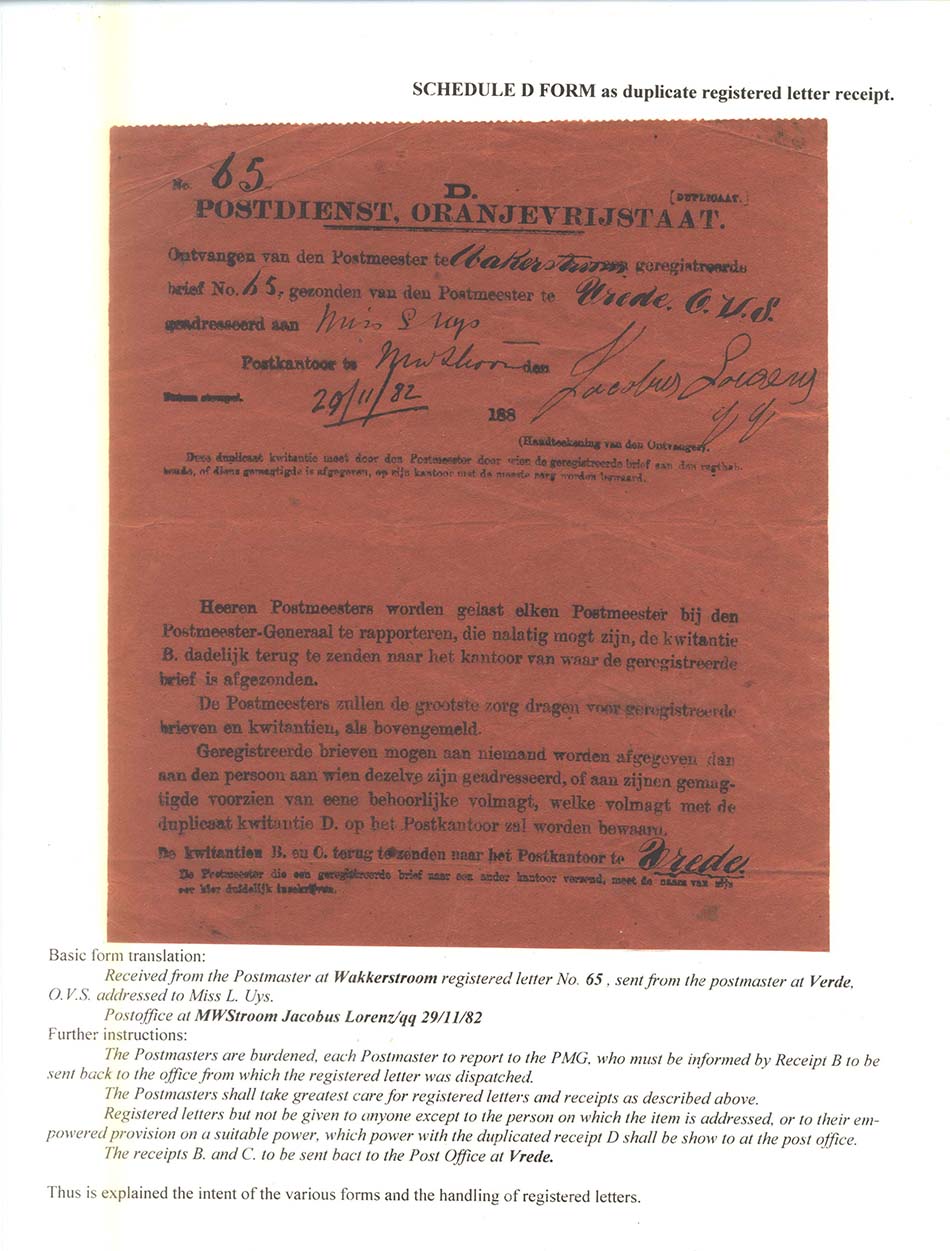 SCHEDULE D FORM as duplicate registered letter receipt.
No. 65
D.
[DUPLICAAT.]
POSTDIENST, ORANJEVRIJSTAAT.
Ontvangen van den Postmeester te Wakerstroom geregistreerde
brief No. 65, gezonden van den Postmeester te Vrede. O.V.S.
geadresseerd aan Miss Uys
Postkantoor te MWStroom den Jacobus Lorenz
Datum stempel. 29/11/82 188 qq
(Handteekening van den Ontvanger).
Deze duplicaat kwitantie moet door den Postmeester door wien de geregistreerde brief aan den regtheb-
bende, of diens gemagtigde is afgegeven, op zijn kantoor met de meeste zorg worden bewaard.
Heeren Postmeesters worden gelast elken Postmeester bij den
Postmeester-Generaal te rapporteren, die nalatig mogt zijn, de kwitantie
B. dadelijk terug te zenden naar het kantoor van waar de geregistreerde
brief is afgezonden.
De Postmeesters zullen de grootste zorg dragen voor geregistreerde
brieven en kwitantien, als bovengemeld.
Geregistreerde brieven mogen aan niemand worden afgegeven dan
aan den persoon aan wien dezelve zijn geadresseerd, of aan zijnen gemag-
tigde voorzien van eene behoorlijke volmagt, welke volmagt met de
duplicaat kwitantie D. op het Postkantoor zal worden bewaard.
De kwitantien B. en C. terug te zenden naar het Postkantoor te Vrede.
De Postmeester die een geregistreerde brief naar een ander kantoor verzend, moet de naam van zijn
eer hier duidelijk inschrijven.
Basic form translation:
Received from the Postmaster at Wakkerstroom registered letter No. 65 , sent from the postmaster at Verde,
O.V.S. addressed to Miss L. Uys.
Postoffice at MWStroom Jacobus Lorenz/qq 29/11/82
Further instructions:
The Postmasters are burdened, each Postmaster to report to the PMG, who must be informed by Receipt B to be
sent back to the office from which the registered letter was dispatched.
The Postmasters shall take greatest care for registered letters and receipts as described above.
Registered letters but not be given to anyone except to the person on which the item is addressed, or to their em-
powered provision on a suitable power, which power with the duplicated receipt D shall be show to at the post office.
The receipts B. and C. to be sent bact to the Post Office at Vrede.
Thus is explained the intent of the various forms and the handling of registered letters.